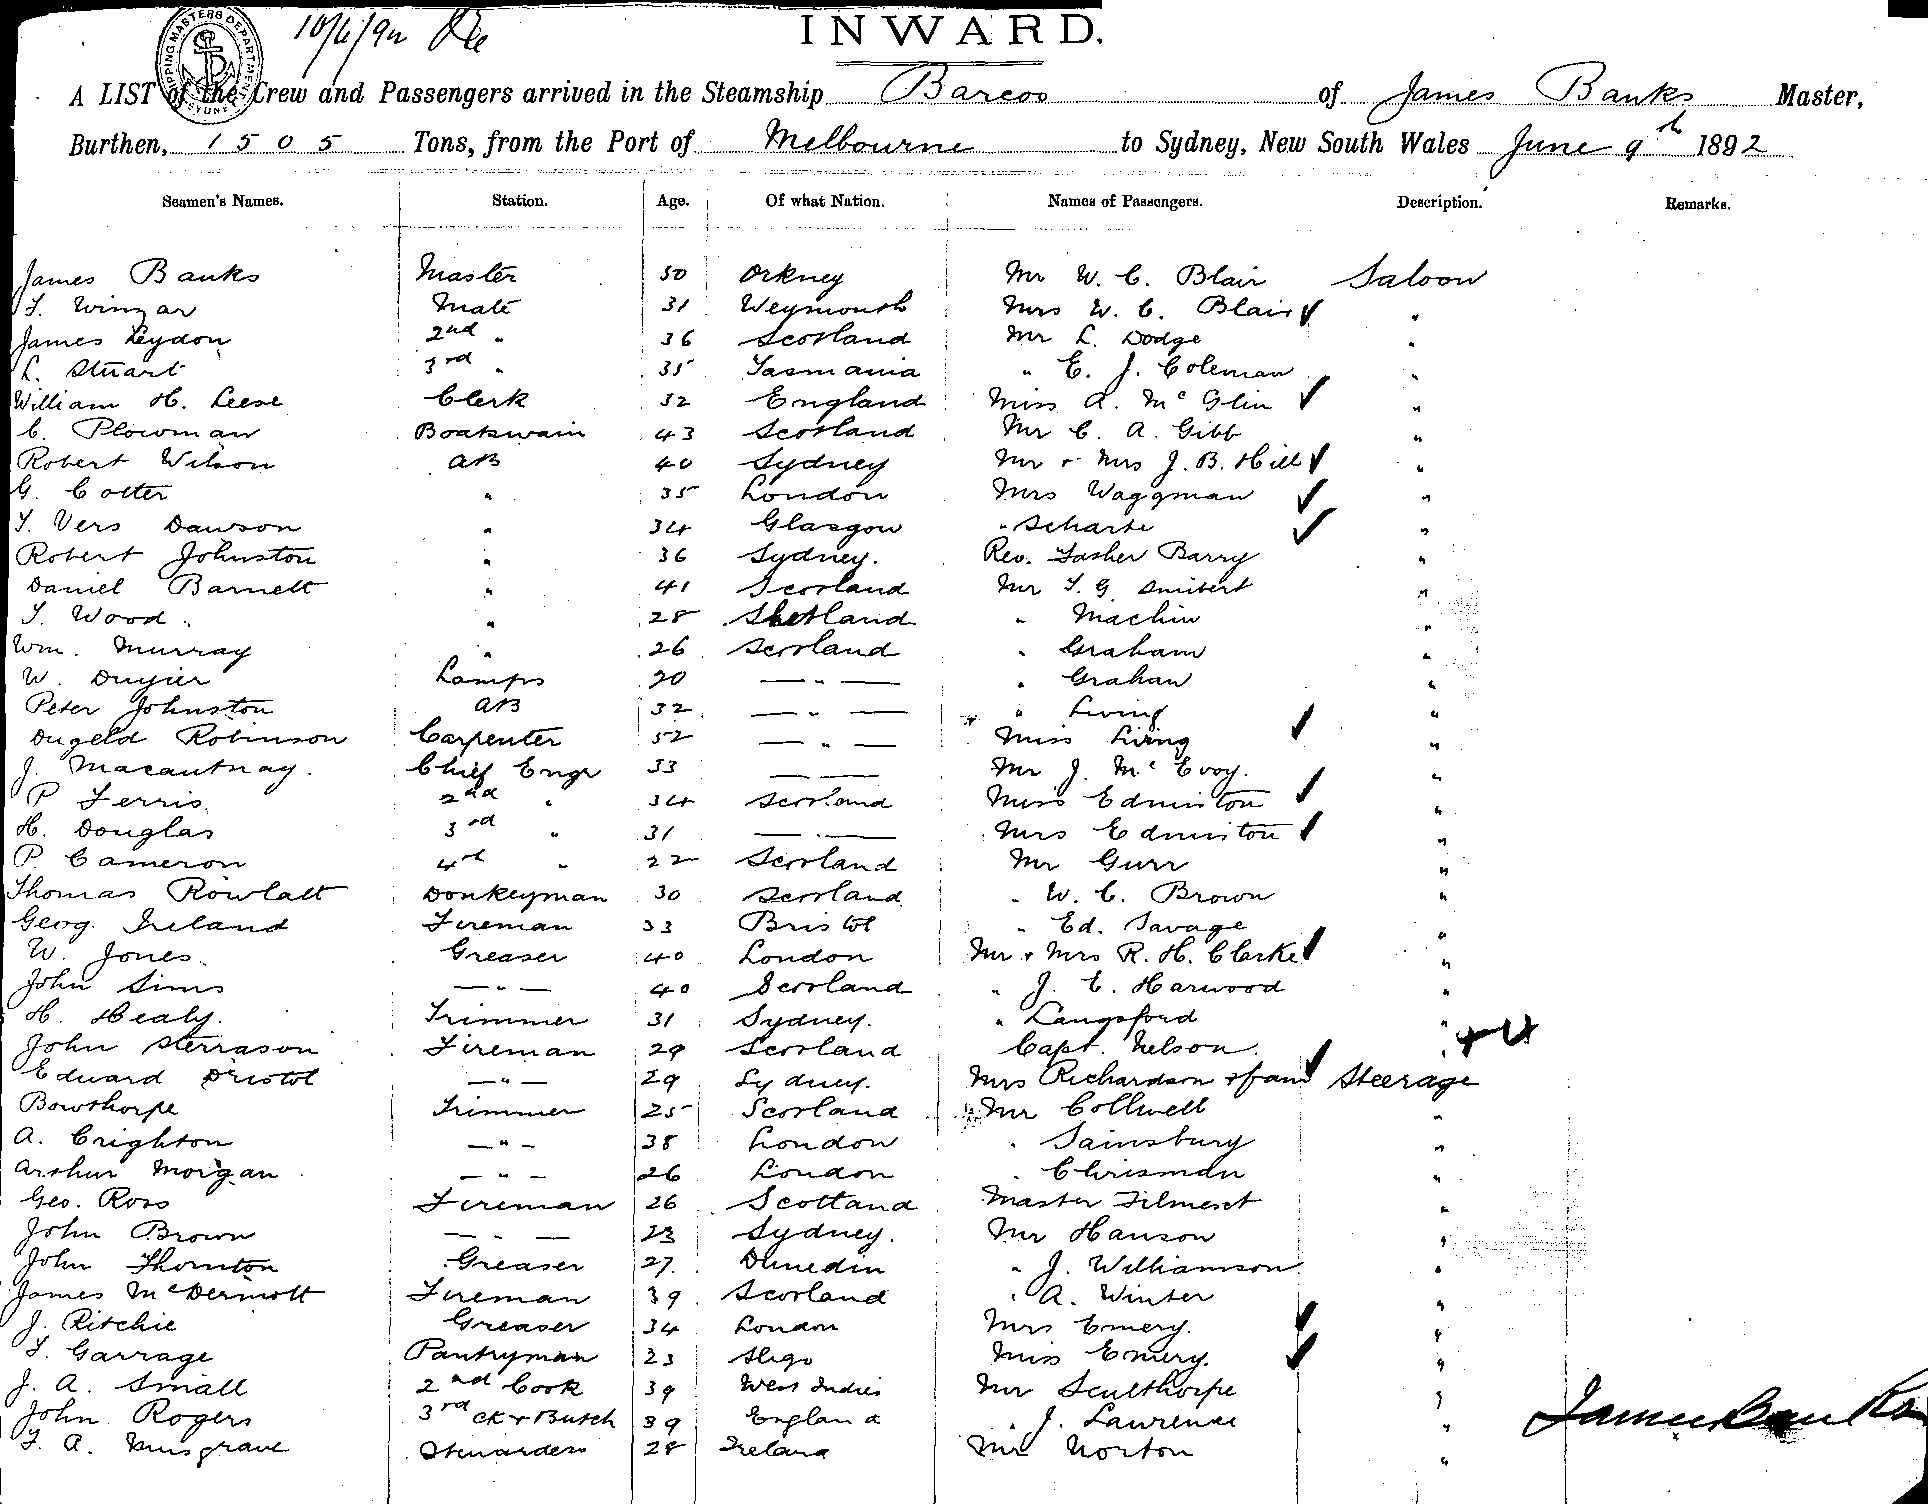 INWARD.
10/6/92
SHIPPING MASTERS DEPARTMENT SYDNEY
A LIST of the Crew and Passengers arrived in the Steamship Barcoo of James Banks Master,
Burthen, 1505 Tons, from the Port of Melbourne to Sydney, New South Wales June 9th 1892
Seamen's Names. Station. Age. Of what Nation. Names of Passengers. Description. Remarks.
James Banks Master 50 Orkney Mr W. C. Blair Saloon
T. Winzar Mate 31 Weymouth Mrs W. C. Blair "
James Leydon 2nd " 36 Scotland Mr L. Dodge "
L. Stuart 3rd " 35 Tasmania " E. J. Coleman "
William H. Leese Clerk 32 England Miss A. McGlin "
C. Plowman Boatswain 43 Scotland Mr C. A. Gibb "
Robert Wilson AB 40 Sydney Mr + Mrs J. B. Hill "
G. Cotter " 35 London Mrs Waggman "
T. Vers Dawson " 34 Glasgow " Scharte "
Robert Johnston " 36 Sydney. Rev. Father Barry "
Daniel Barnett " 41 Scotland Mr T. G. Smibert "
T. Wood " 28 Shetland " Machin "
Wm. Murray " 26 Scotland " Graham "
W. Lamps 20 — " — " Graham "
Peter Johnston AB 32 — " — " Living "
Dugeld Robinson Carpenter 52 — " — Miss Living "
J. Macautnay. Chief Engr 33 — — Mr J. McEvoy. "
P Ferris. 2nd " 34 Scotland Miss Edmiston "
H. Douglas 3rd " 31 — " — Mrs Edmiston "
P. Cameron 4th " 22 Scotland Mr Gurr "
Thomas Rowlatt Donkeyman 30 Scotland " W. C. Brown "
Georg. Ireland Fireman 33 Bristol " Ed. Savage "
W. Jones. Greaser 40 London Mr + Mrs R. H. Clarke "
John Sims — " — 40 Scotland " J. E. Harwood "
H. Healy. Trimmer 31 Sydney. " Langsford "
John Sterrason Fireman 29 Scotland Capt. Nelson. "
Edward Bristol — " — 29 Sydney. Mrs Richardson + fam Steerage
Bowthorpe Trimmer 25 Scotland Mr Collwell "
A. Crighton — " — 38 London " Sainsbury "
Arthur Morgan — " — 26 London " Chrisman "
Geo. Ross Fireman 26 Scotland Master Filmest "
John Brown — " — 23 Sydney. Mr Hanson "
John Thornton Greaser 27. Dunedin " J. Williamson "
James McDermott Fireman 39 Scotland " A. Winter "
J. Ritchie Greaser 34 London Mrs Emery. "
T. Garrage Pantryman 23 Sligo Miss Emery. "
J. A. Small 2nd Cook 39 West Indies Mr Sculthorpe "
John Rogers 3rd Ck + Butch 39 England " J. Lawrence "
T. A. Musgrave Stewardess 28 Ireland Mr Norton "
James Banks